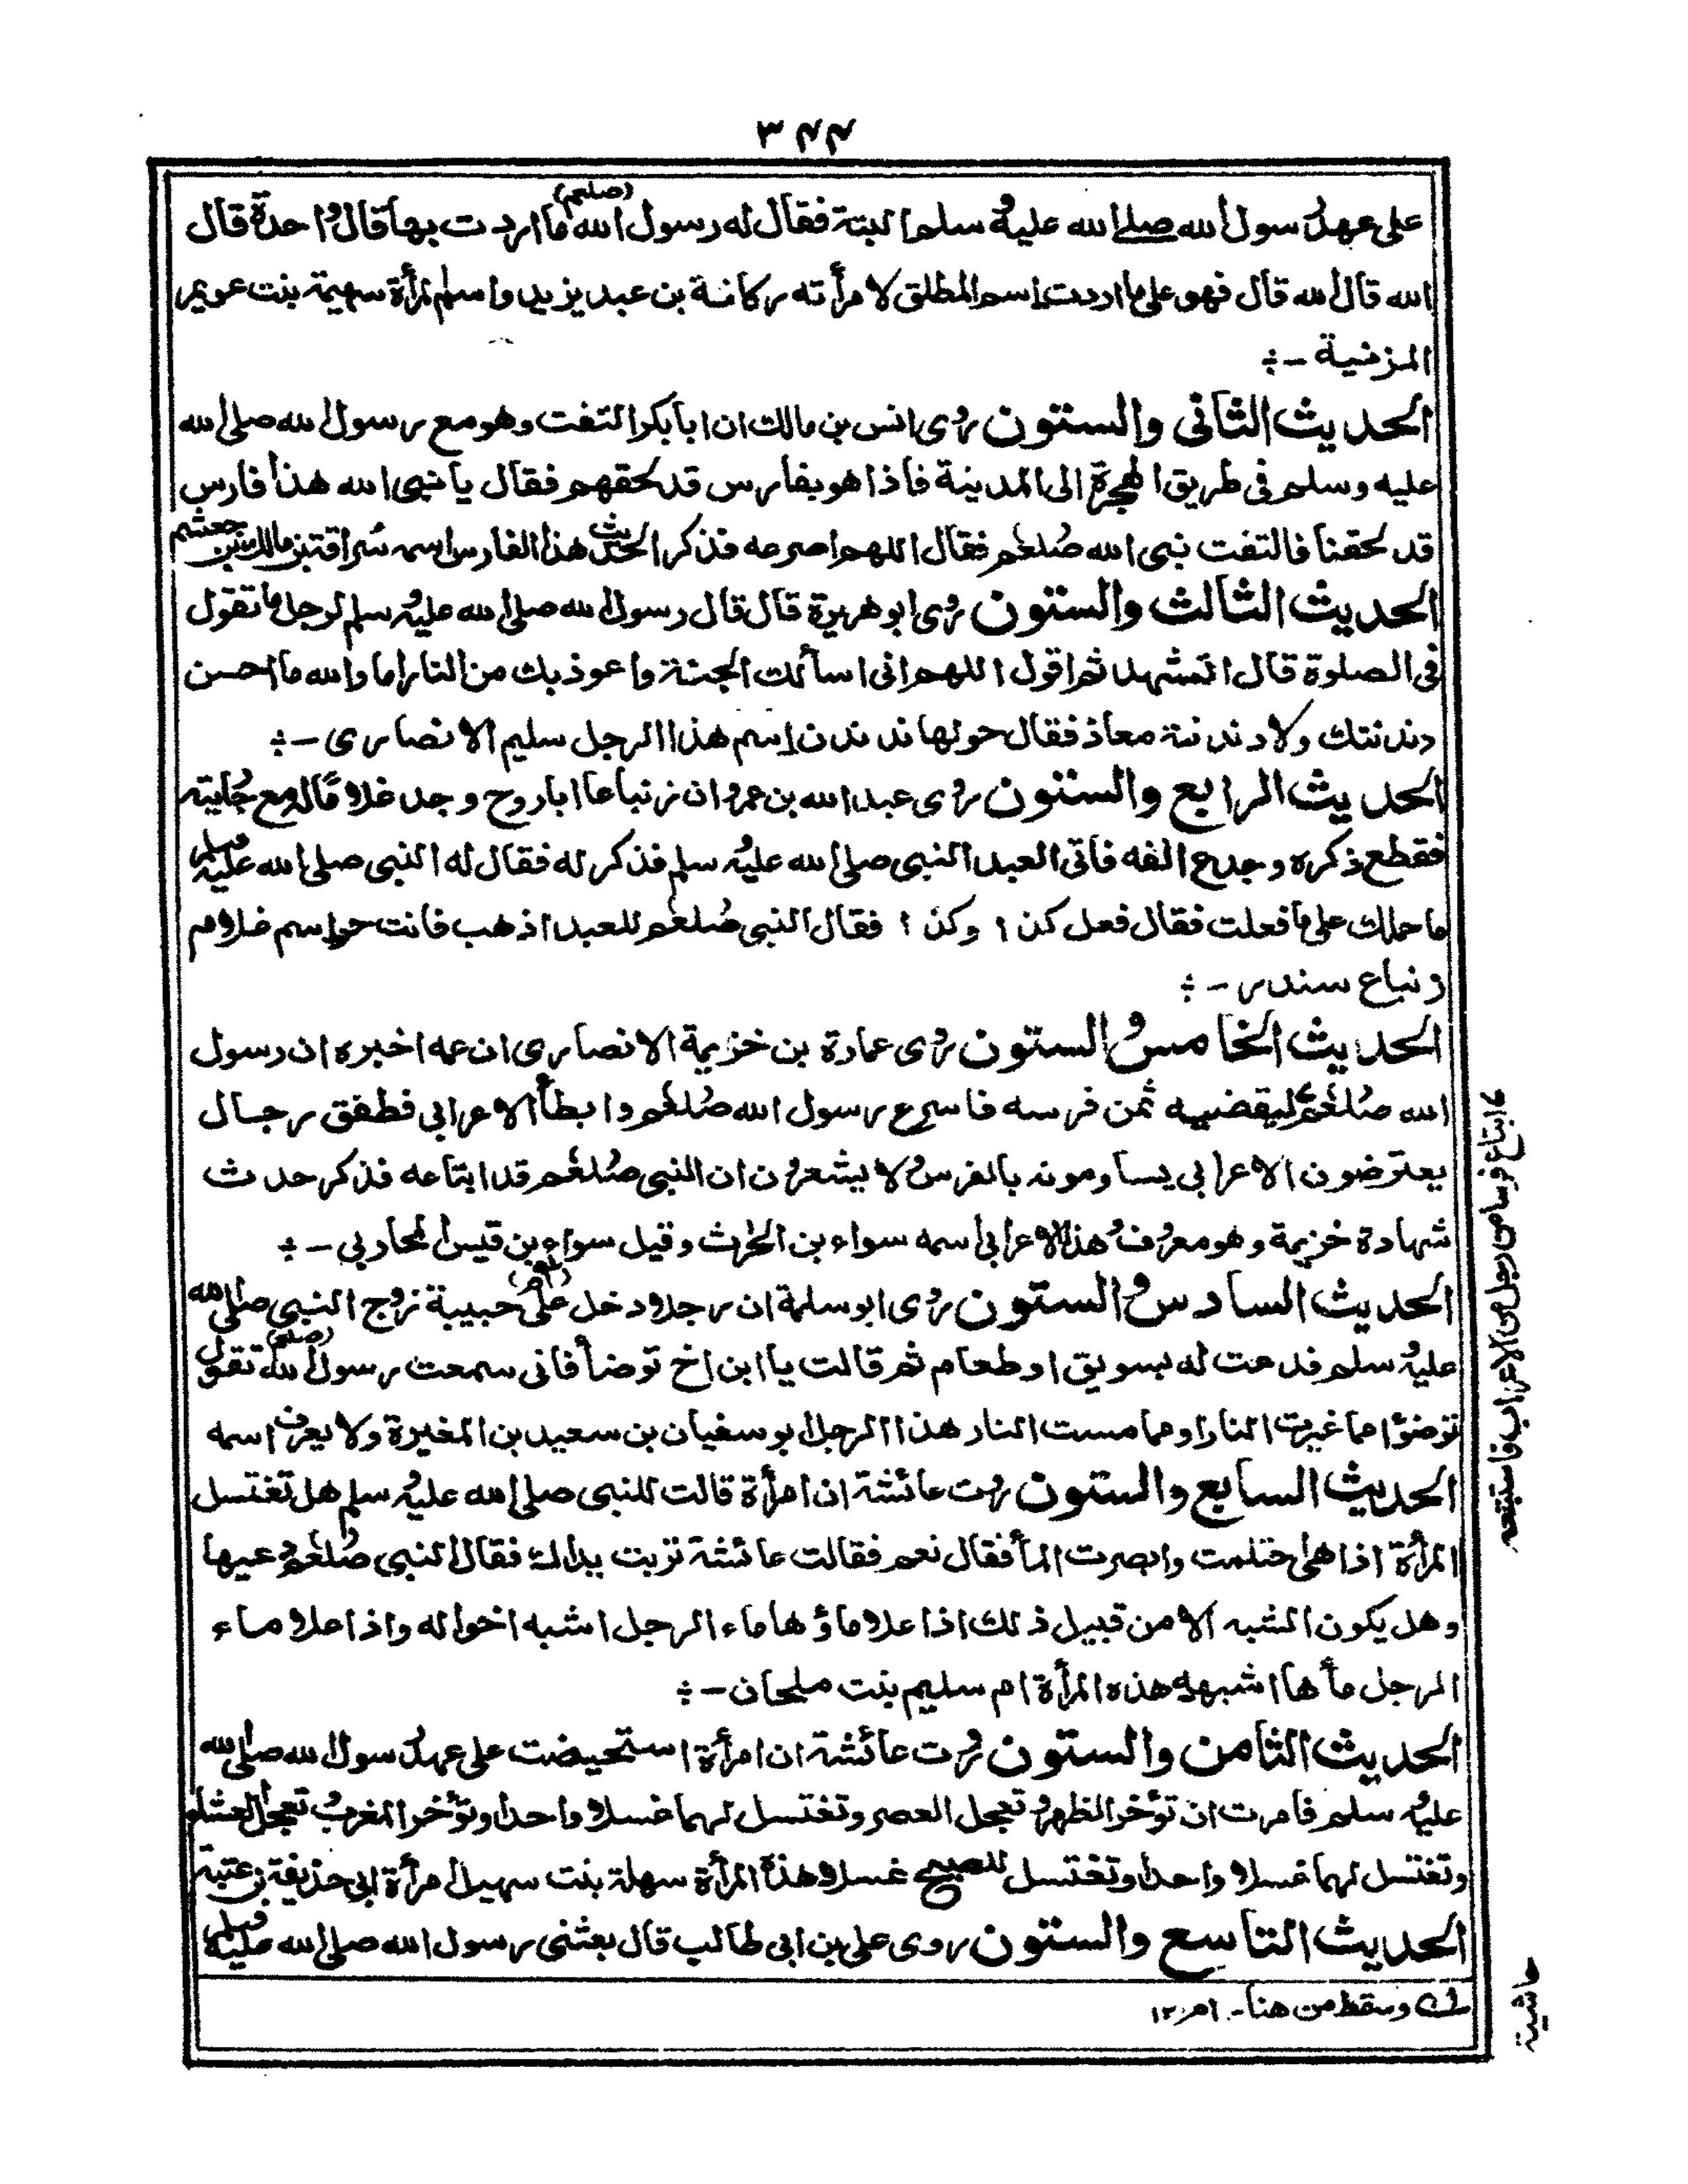 ۳۴۴
على عهد رسول الله صلى الله عليه وسلم البتة فقال له رسول الله (صلعم) ما اردت بها قال واحدة قال
الله قال الله قال فهو على ما اردت اسم المطلق لامرأته ركانة بن عبد يزيد واسم امرأة سهيمة بنت عويمر
المزنية -:
الحديث الثانى والستون روى انس بن مالك ان ابا بكر التفت وهو مع رسول الله صلى الله
عليه وسلم فى طريق الهجرة الى المدينة فاذا هو بفارس قد لحقهم فقال يا نبى الله هذا فارس
قد لحقنا فالتفت نبى الله صلعم فقال اللهم اصرعه فذكر الحديث هذا الفارس اسمه سراقة بن مالك بن جعشم
الحديث الثالث والستون روى ابو هريرة قال قال رسول الله صلى الله عليه وسلم لرجل ما تقول
فى الصلوة قال اتشهد ثم اقول اللهم انى اسألك الجنة واعوذ بك من النار اما والله ما احسن
دندنتك ولا دندنة معاذ فقال حولها ندندن اسم هذا الرجل سليم الانصارى -:
الحديث الرابع والستون روى عبد الله بن عمرو ان زنباعا ابا روح وجد غلاما له مع جاريته
فقطع ذكره وجدع انفه فاتى العبد النبى صلى الله عليه وسلم فذكر له فقال له النبى صلى الله عليه وسلم
ما حملك على ما فعلت فقال فعل كذا وكذا فقال النبى صلعم للعبد اذهب فانت حر اسم غلام
زنباع سندر -:
الحديث الخامس والستون روى عمارة بن خزيمة الانصارى ان عمه اخبره ان رسول
الله صلعم ليقضيه ثمن فرسه فاسرع رسول الله صلعم وابطأ الاعرابى فطفق رجال
يعترضون الاعرابى يساومونه بالفرس ولا يشعرون ان النبى صلعم قد ابتاعه فذكر حدث
شهادة خزيمة وهو معروف وهذا الاعرابى اسمه سواء بن الحارث وقيل سواء بن قيس المحاربى -:
الحديث السادس والستون روى ابو سلمة ان رجلا دخل على (ام) حبيبة زوج النبى صلى الله
عليه وسلم فدعت له بسويق او طعام ثم قالت يا ابن اخ توضأ فانى سمعت رسول الله (صلعم) تقول
توضؤا مما غيرت النار او مما مست النار هذا الرجل ابو سفيان بن سعيد بن المغيرة ولا يعرف اسمه
الحديث السابع والستون روت عائشة ان امرأة قالت للنبى صلى الله عليه وسلم هل تغتسل
المرأة اذا هى احتلمت وابصرت المأ فقال نعم فقالت عائشة تربت يداك فقال النبى صلعم دعيها
وهل يكون الشبه الا من قبيل ذلك اذا علا ماؤها ماء الرجل اشبه اخواله واذا علا ماء
الرجل مأها اشبهه هذه المرأة ام سليم بنت ملحان -:
الحديث الثامن والستون روت عائشة ان امرأة استحيضت على عهد رسول الله صلى الله
عليه وسلم فامرت ان تؤخر الظهر وتعجل العصر وتغتسل لهما غسلا واحدا وتؤخر المغرب وتعجل العشاء
وتغتسل لهما غسلا واحدا وتغتسل للصبح غسلا وهذه المرأة سهلة بنت سهيل امرأة ابى حذيفة بن عتبة
الحديث التاسع والستون روى على بن ابى طالب قال بعثنى رسول الله صلى الله عليه وسلم
وسقط من هنا - ام ۱۲
ابتاع فرسا من رجل من الاعراب فاستتبعه
حاشية